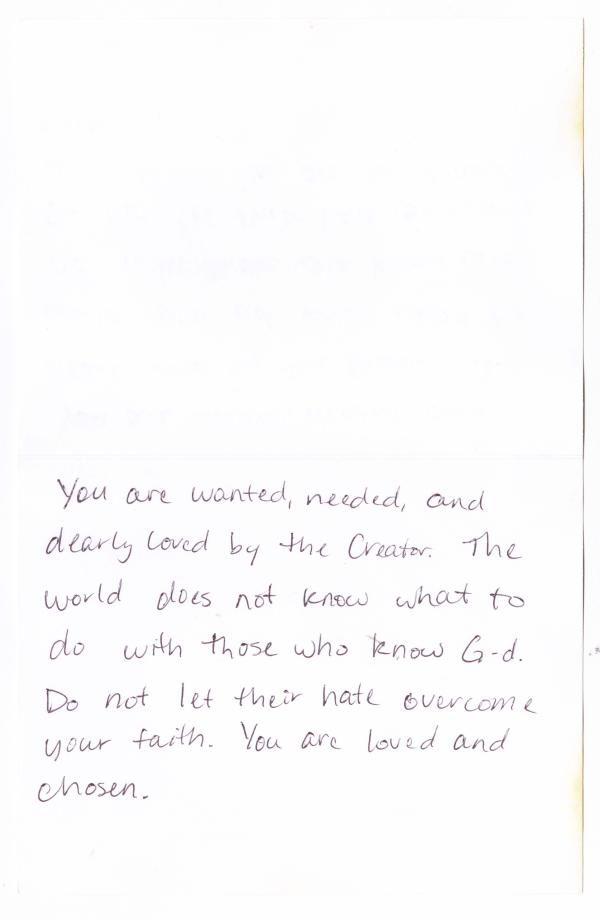 You are wanted, needed, and
dearly loved by the Creator. The
world does not know what to
do with those who know G-d.
Do not let their hate overcome
your faith. You are loved and
chosen.